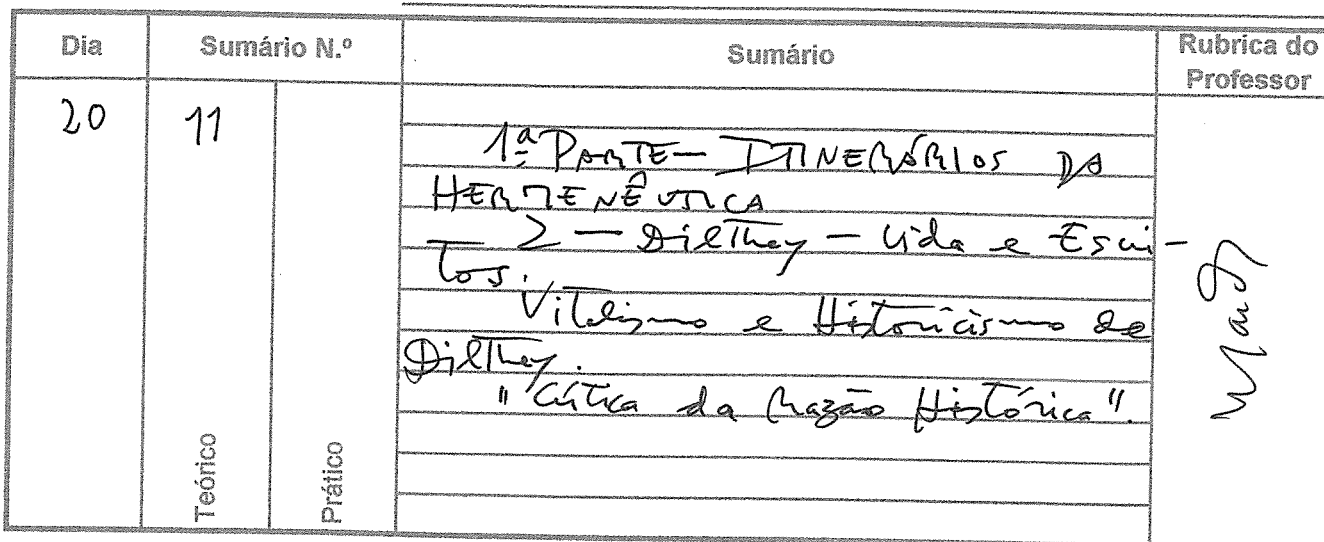 Dia Sumário N.º Sumário Rubrica do Professor
20 11
1ª PARTE — ITINERÁRIOS DA
HERMENÊUTICA
2 — Dilthey — Vida e Escri-
tos.
Vitalismo e Historicismo de
Dilthey.
"Crítica da Razão Histórica".
Teórico Prático